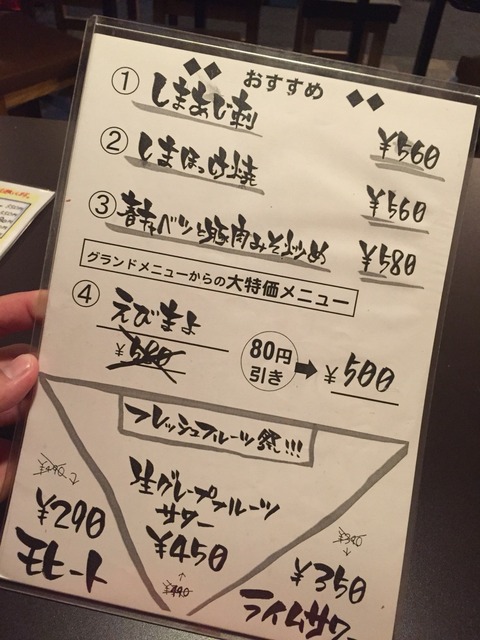 ◆◆ おすすめ ◆◆
① しまあじ刺 ¥560
② しまほっけ焼 ¥560
③ 春キャベツと豚肉みそ炒め ¥580
グランドメニューからの大特価メニュー
④ えびまよ
¥580 80円引き ➡ ¥500
フレッシュフルーツ祭!!!
生グレープフルーツ
サワー
¥450
¥490
¥290
モヒート
¥390
¥350
ライムサワー